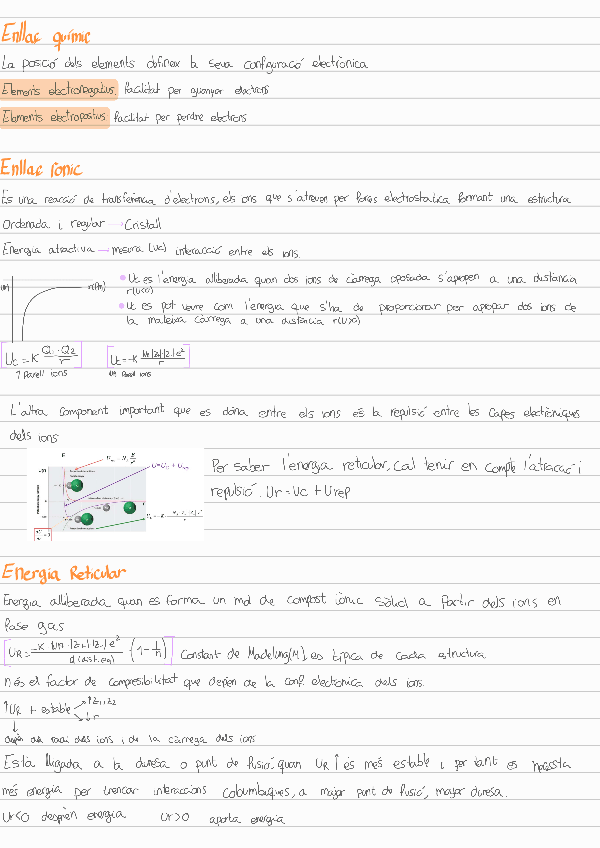 Enllaç químic
La posició dels elements defineix la seva configuració electrònica
Elements electronegatius: facilitat per guanyar electrons
Elements electropositius facilitat per perdre electrons
Enllaç iònic
És una reacció de transferència d'electrons, els ions que s'atreuen per forces electrostàtica formant una estructura
Ordenada i regular → Cristall
Energia atractiva → mesura (Uc) interacció entre els ions.
r(Pm)
• Uc es l'energia alliberada quan dos ions de càrrega oposada s'apropen a una distància
r(U<0)
• Uc es pot veure com l'energia que s'ha de proporcionar per apropar dos ions de
la mateixa càrrega a una distància r(U>0)
Uc = K Q1·Q2 / r
1 Parell ions
Uc = -K
parell ions
L'altra component important que es dóna entre els ions és la repulsió entre les capes electròniques
dels ions
Per saber l'energia reticular, cal tenir en compte l'atracció i
repulsió. Ur = Uc + Urep
Energia Reticular
Energia alliberada quan es forma un mol de compost iònic sòlid a partir dels ions en
fase gas
UR = -K·M·|Z+|·|Z-|·e² / d(dist.eq) · (1 - 1/n) Constant de Madelung(M), es típica de cada estructura
n és el factor de compresibilitat que depèn de la conf. electrònica dels ions.
↑UR + estable ↑Z1,Z2
↓r
depèn del radi dels ions i de la càrrega dels ions
Està lligada a la duresa o punt de fusió, quan UR ↑ és més estable i per tant es necessita
més energia per trencar interaccions columbiques, a major punt de fusió, major duresa.
Ur<0 desprèn energia Ur>0 aporta energia